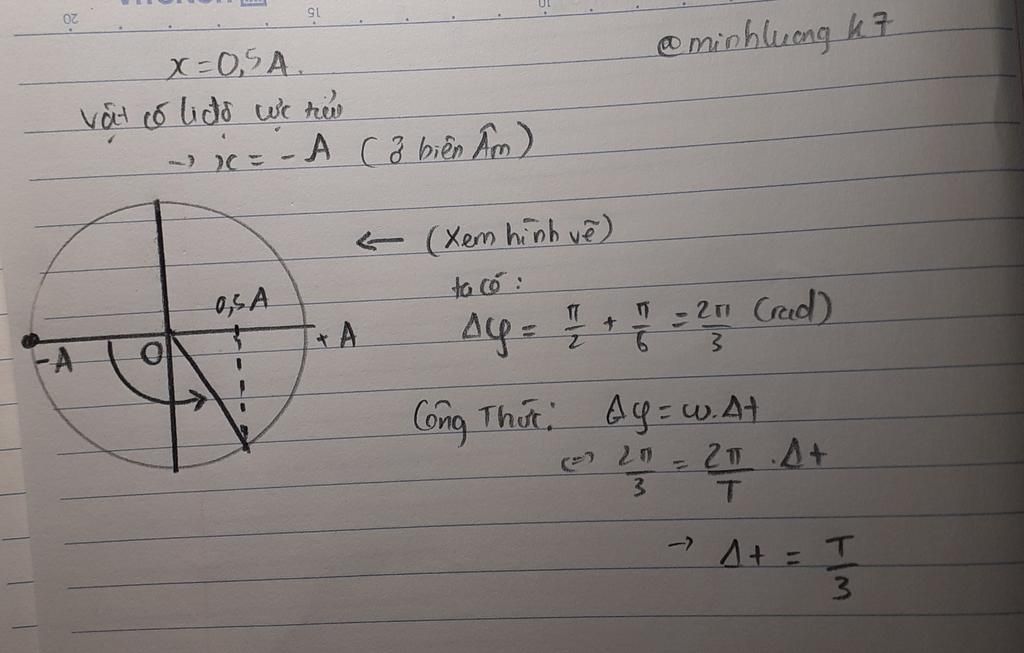 20 15 10
@minhluong k7
x = 0,5A.
Vật có li độ cực tiểu
→ x = - A ( ở biên Âm )
← (Xem hình vẽ)
ta có:
0,5A
-A O + A
Δφ = π/2 + π/6 = 2π/3 (rad)
Công Thức: Δφ = ω.Δt
<=> 2π/3 = 2π/T . Δt
→ Δt = T/3